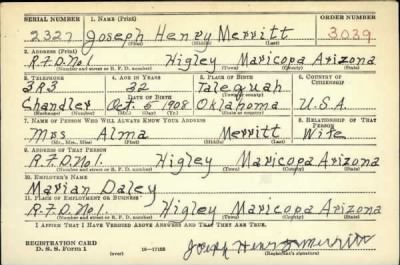 SERIAL NUMBER 1. NAME (Print) ORDER NUMBER
2327 Joseph Henry Merritt 3039
(First) (Middle) (Last)
2. ADDRESS (Print)
R.F.D. No 1. Higley Maricopa Arizona
(Number and street or R. F. D. number) (Town) (County) (State)
3. TELEPHONE 4. AGE IN YEARS 5. PLACE OF BIRTH 6. COUNTRY OF CITIZENSHIP
3R3 32 Talequah
DATE OF BIRTH (Town or county)
Chandler Oct. 5 1908 Oklahoma U.S.A.
(Exchange) (Number) (Mo.) (Day) (Yr.) (State or country)
7. NAME OF PERSON WHO WILL ALWAYS KNOW YOUR ADDRESS 8. RELATIONSHIP OF THAT PERSON
Mrs Alma Merritt Wife
(Mr., Mrs., Miss) (First) (Middle) (Last)
9. ADDRESS OF THAT PERSON
R.F.D. No 1. Higley Maricopa Arizona
(Number and street or R. F. D. number) (Town) (County) (State)
10. EMPLOYER'S NAME
Marian Daley
11. PLACE OF EMPLOYMENT OR BUSINESS
R.F.D. No 1. Higley Maricopa Arizona
(Number and street or R. F. D. number) (Town) (County) (State)
I AFFIRM THAT I HAVE VERIFIED ABOVE ANSWERS AND THAT THEY ARE TRUE.
REGISTRATION CARD
D. S. S. Form 1 (over) 16—17105 Joseph Henry Merritt
(Registrant's signature)